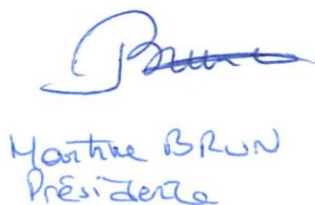 Brun
Martine BRUN
Présidente